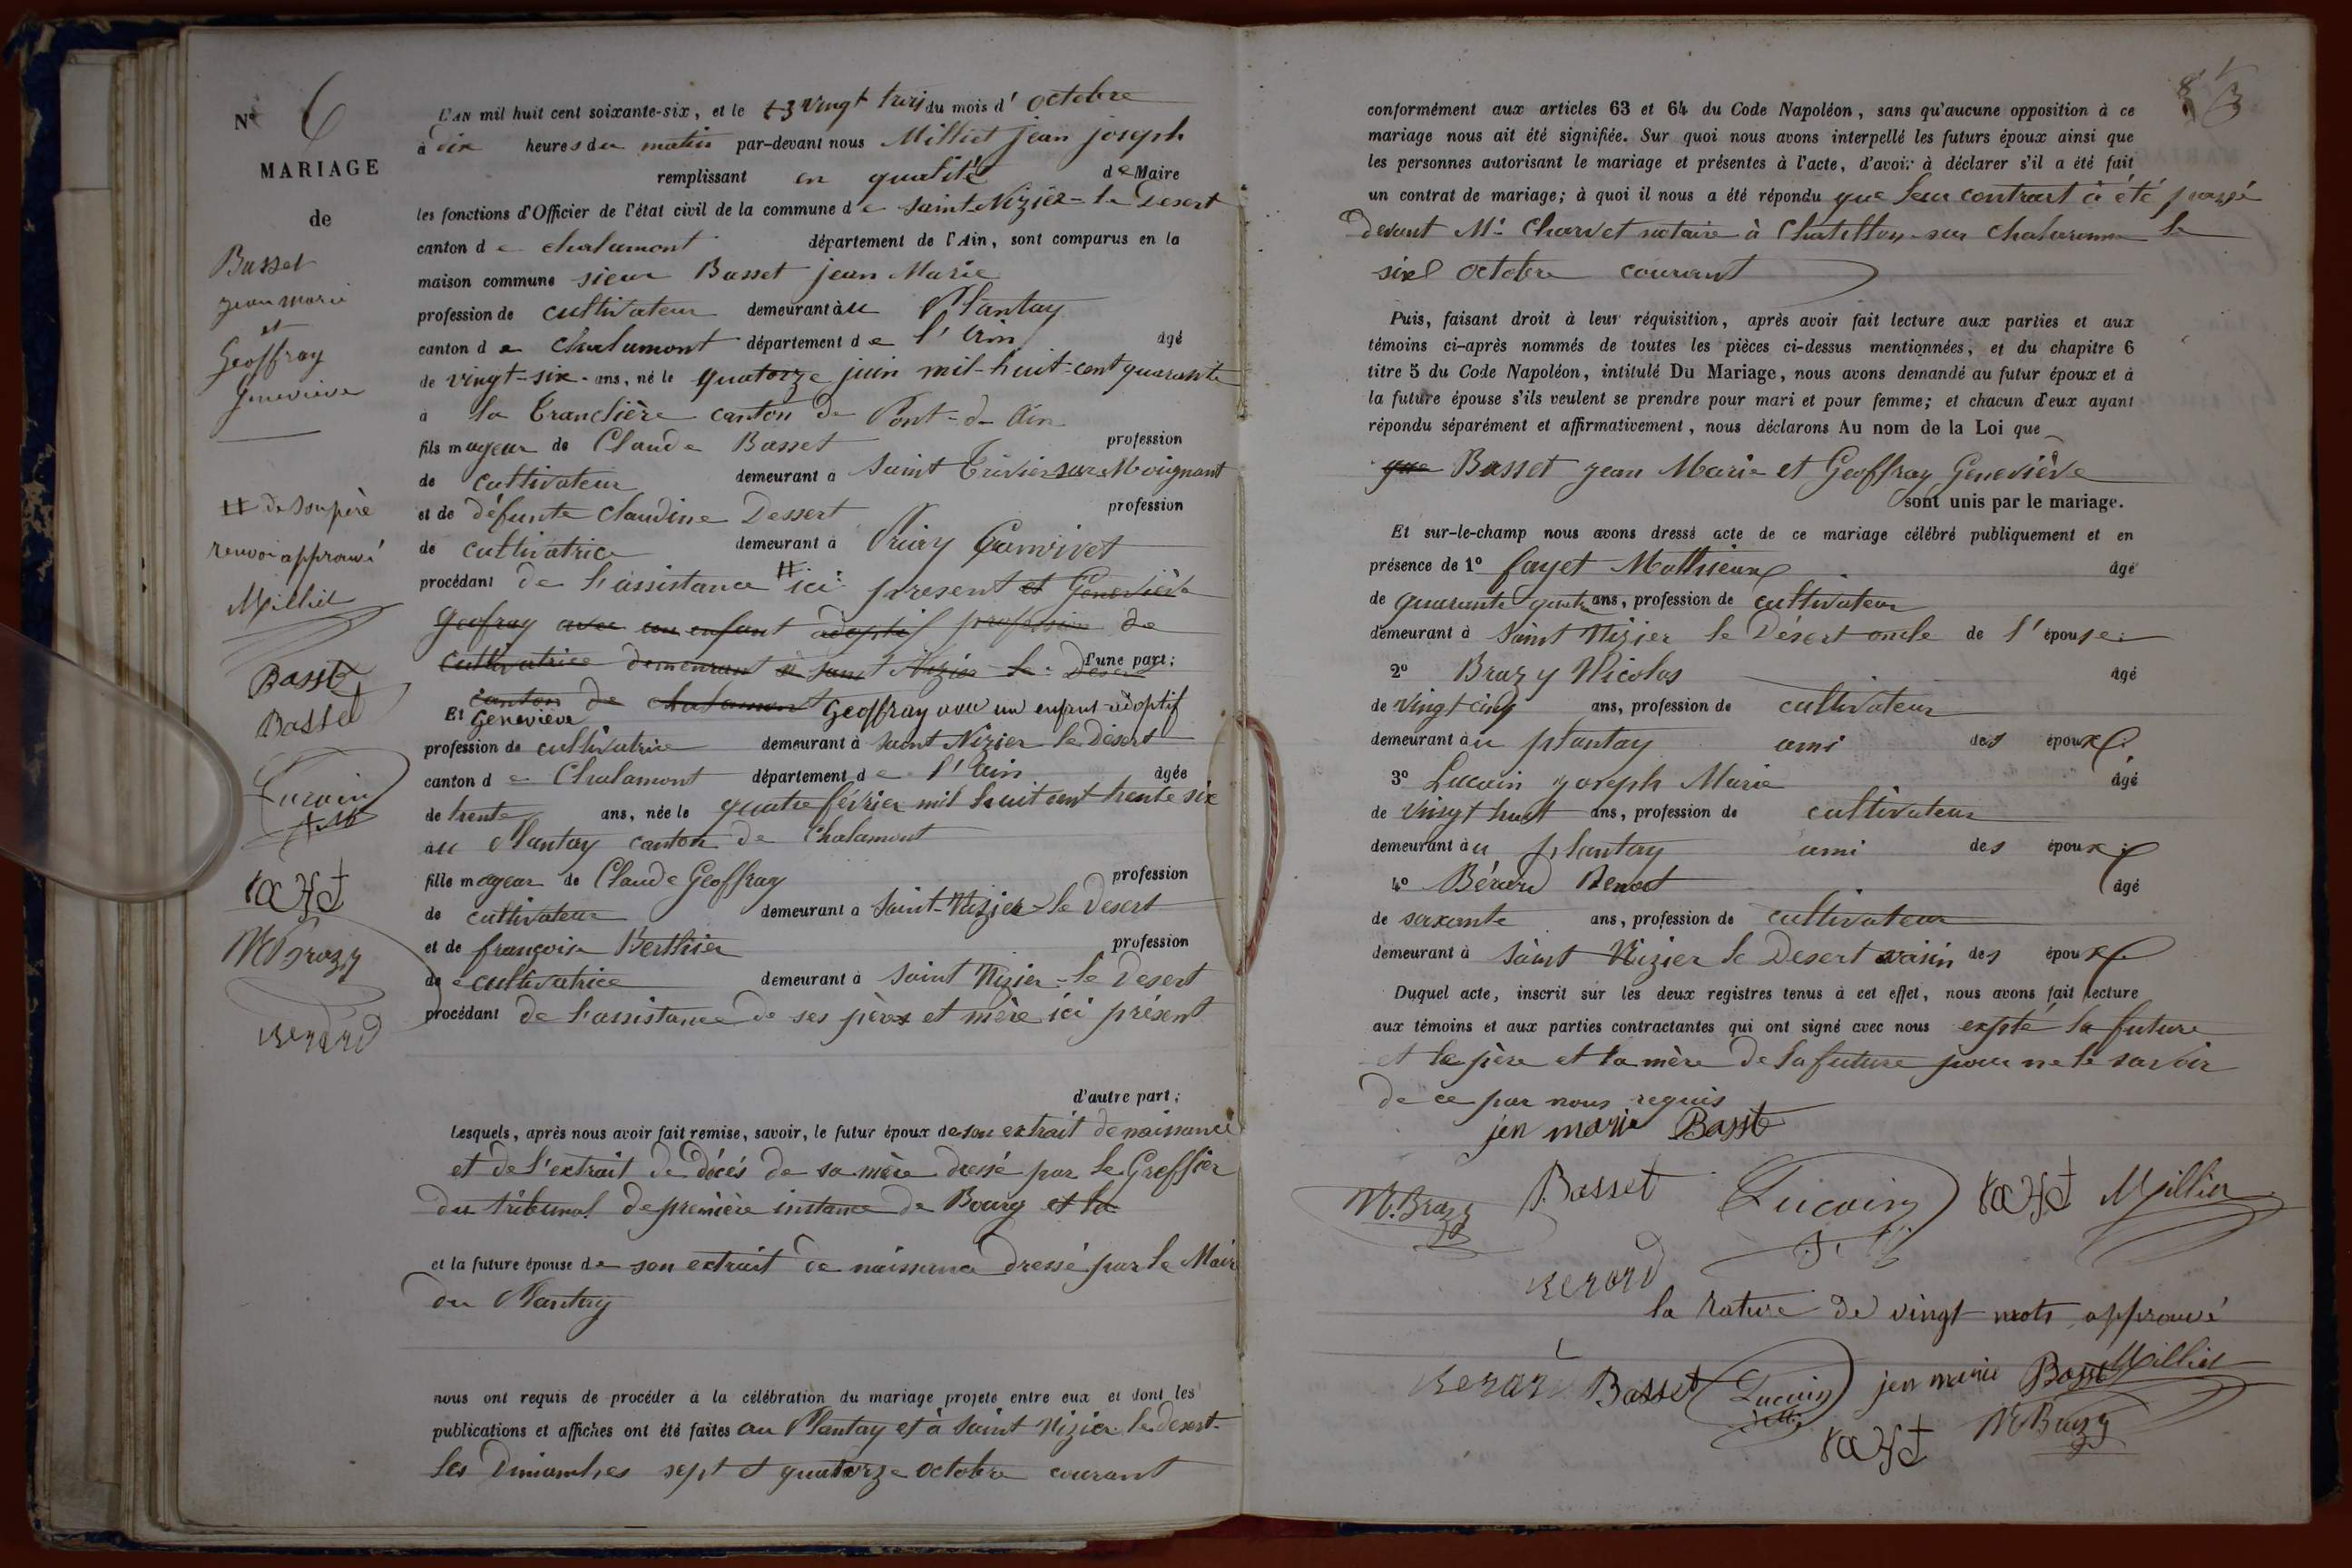 Nº 6
MARIAGE
de
Basset
jean marie
et
Geoffray
Geneviève
# de son père
renvoi approuvé
Milliet
Basst
Basset
Lucain
N Brazy
Berard
L'AN mil huit cent soixante-six, et le 23 vingt trois du mois d' octobre
à dix heures du matin par-devant nous Milliet jean joseph
remplissant en qualité de Maire
les fonctions d'Officier de l'état civil de la commune de Saint Nizier-le Desert
canton de chalamont département de l'Ain, sont comparus en la
maison commune sieur Basset jean Marie
profession de cultivateur demeurant au Plantay
canton de Chalamont département de l'Ain âgé
de vingt-six ans, né le quatorze juin mil-huit-cent quarante
à la Tranclière canton de Pont-d-Ain
fils mageur de Claude Basset profession
de cultivateur demeurant a Saint Trivier sur Moignant
et de défunte Claudine Dessert profession
de cultivatrice demeurant à Priay
procédant de l'assistance # ici present et Geneviève
Geofray avec un enfant adoptif profession de
cultivatrice demeurant à saint Nizier le Desert d'une part;
canton de chalamont
Et Geneviève Geoffray avec un enfant adoptif
profession de cultivatrice demeurant à Saint Nizier le Désert
canton de Chalamont département de l'Ain âgée
de trente ans, née le quatre février mil huit cent trente six
au Plantay canton de Chalamont
fille mageur de Claude Geoffray profession
de cultivateur demeurant a Saint-Nizier-le Desert
et de françoise Berthier profession
de cultivatrice demeurant à Saint Nizier-le Desert
procédant de l'assistance de ses pères et mère ici présent
d'autre part;
Lesquels, après nous avoir fait remise, savoir, le futur époux de son extrait de naissance
et de l'extrait de décés de sa mère dressé par le Greffier
du tribunal de première instance de Bourg et la
et la future épouse de son extrait de naissance dressé par le Maire
du Plantay
nous ont requis de procéder à la célébration du mariage projeté entre eux et dont les
publications et affiches ont été faites au Plantay et à Saint Nizier le desert
les Dimanches sept et quatorze octobre courant
conformément aux articles 63 et 64 du Code Napoléon, sans qu'aucune opposition à ce
mariage nous ait été signifiée. Sur quoi nous avons interpellé les futurs époux ainsi que
les personnes autorisant le mariage et présentes à l'acte, d'avoir à déclarer s'il a été fait
un contrat de mariage; à quoi il nous a été répondu que leur contrat à été passé
devant Me Charvet notaire à Chatillon-sur Chalaronne le
six octobre courant
Puis, faisant droit à leur réquisition, après avoir fait lecture aux parties et aux
témoins ci-après nommés de toutes les pièces ci-dessus mentionnées, et du chapitre 6
titre 5 du Code Napoléon, intitulé Du Mariage, nous avons demandé au futur époux et à
la future épouse s'ils veulent se prendre pour mari et pour femme; et chacun d'eux ayant
répondu séparément et affirmativement, nous déclarons Au nom de la Loi que
que Basset jean Marie et Geoffray Geneviève
sont unis par le mariage.
Et sur-le-champ nous avons dressé acte de ce mariage célébré publiquement et en
présence de 1º fayet Mathieux âgé
de quarante quatre ans, profession de cultivateur
demeurant à Saint Nizier le Désert oncle de l'épouse
2º Brazy Nicolas âgé
de vingt cinq ans, profession de cultivateur
demeurant au plantay ami des époux
3º Lucain joseph Marie âgé
de vingt huit ans, profession de cultivateur
demeurant au plantay ami des époux
4º Bérard Benoit âgé
de soixante ans, profession de cultivateur
demeurant à Saint Nizier le Desert voisin des époux
Duquel acte, inscrit sur les deux registres tenus à cet effet, nous avons fait lecture
aux témoins et aux parties contractantes qui ont signé avec nous expté la future
et le père et la mère de la future pour ne le savoir
de ce par nous requis
jen marie Basst
N. Brazy Basset Lucain Milliet
Berard
la rature de vingt mots approuvé
Berard Basset Lucain jen marie Basst Milliet
N Brazy